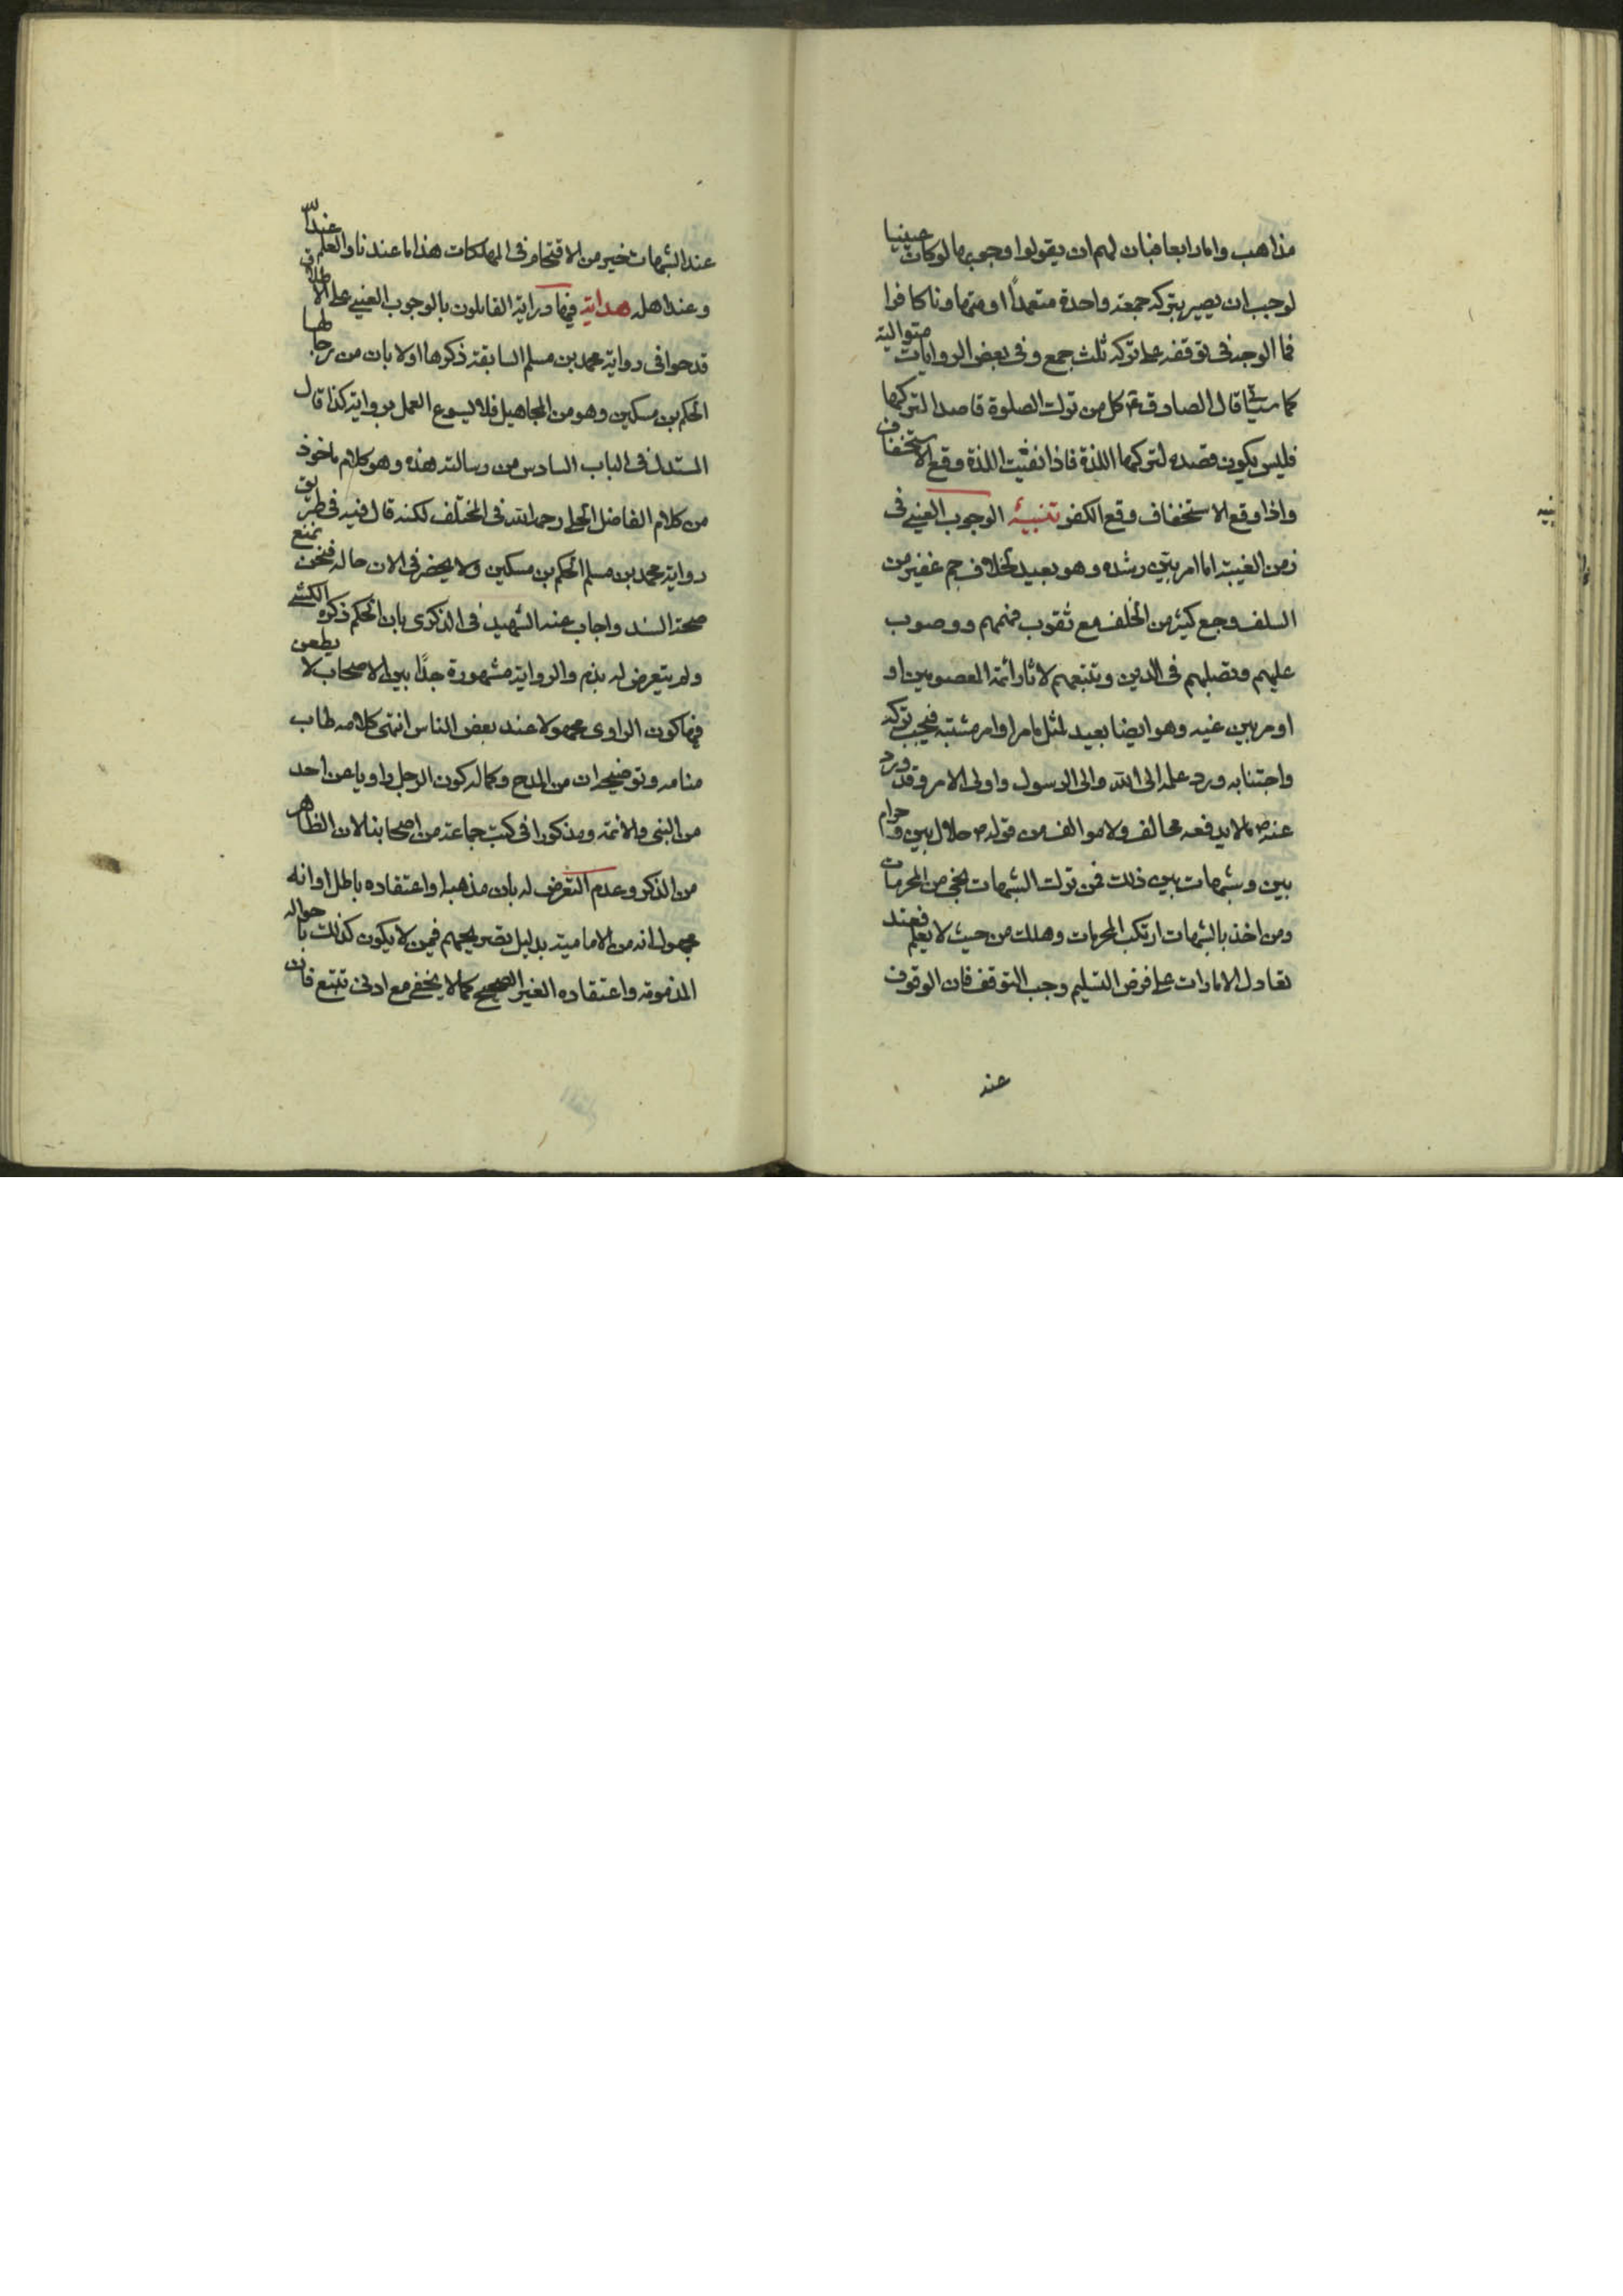 مذاهب واما رابعا فبان لهم ان يقولوا وجوبها لو كان عينيا
لوجب ان يصير بتركه جمعة واحدة متعمدا او متهاونا كافرا
فما الوجه في توقفه على تركه ثلث جمع وفي بعض الروايات متوالية
كما سياتي قال الصادق ع كل من ترك الصلوة قاصدا لتركها
فليس يكون قصده لتركها اللذة فاذا نفيت اللذة وقع الاستخفاف
واذا وقع الاستخفاف وقع الكفر تنبيه الوجوب العيني في
زمن الغيبة اما امر بين رشده وهو بعيد لخلاف جم غفير من
السلف وجمع كثير من الخلف مع ثقوب فهمهم ووصوب
عليهم وتصلبهم في الدين وتتبعهم لاثار ائمة المعصومين او
امر بين غيه وهو ايضا بعيد لمثل ما مر او امر مشتبه فيجب تركه
واجتنابه ورد علمه الى الله والى الرسول واولى الامر وقد ورد
عنه ص بما لا يدفعه مخالف ولا موالف من قوله ص حلال بين وحرام
بين وشبهات بين ذلك فمن ترك الشبهات نجى من المحرمات
ومن اخذ بالشبهات ارتكب المحرمات وهلك من حيث لا يعلم فعند
تعادل الامارات على فرض التسليم وجب التوقف فان الوقوف
عند
عند الشبهات خير من الاقتحام في المهلكات هذا ما عندنا والعلم عند الله
وعند اهله هداية فيها دراية القائلون بالوجوب العيني على الاطلاق
قدحوا في رواية محمد بن مسلم السابقة ذكرها اولا بان من رجالها
الحكم بن مسكين وهو من المجاهيل فلا يسوغ العمل بروايته كذا قال
المستدل في الباب السادس من رسالته هذه وهو كلام ماخوذ
من كلام الفاضل الحلي رحمه الله في المختلف لكنه قال فيه في طريق
رواية محمد بن مسلم الحكم بن مسكين ولا يحضرني الان حاله فنحن نمنع
صحة السند واجاب عنه الشهيد في الذكرى بان الحكم ذكره الكشي
ولم يتعرض له بذم والرواية مشهورة جدا بين الاصحاب لا يطعن
فيها كون الراوي مجهولا عند بعض الناس انتهى كلامه طاب
منامه وتوضيحه ان من المدح وكماله كون الرجل راويا عن احد
من النبي والائمة ومذكورا في كتب جماعة من اصحابنا لان الظاهر
من الذكر وعدم التعرض له بان مذهبه او اعتقاده باطل او انه
مجهول انه من الامامية بدليل تصريحهم فيمن لا يكون كذلك باحواله
المذمومة واعتقاده الغير الصحيح كما لا يخفى مع ادنى تتبع فان